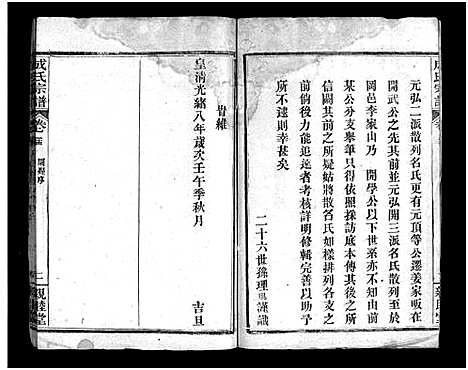 元弘二派散列名氏更有元頂等公遷姜家畈在
開武公之先其前並元弘開三派名氏散列至於
岡邑李家山乃 開學公以下世系亦不知出自
某公分支舉筆只得依照採訪底本傳其後之所
信闕其前之所疑姑將散名氏如樣排列各支之
前倘後有力能追遠者考核詳明修輯完善以助予
所不逮則幸甚矣
二十六世孫理 謹識
旹維
皇清光緒八年歲次壬午季秋月 吉旦
成氏宗譜 卷
二 親睦堂
成氏宗譜